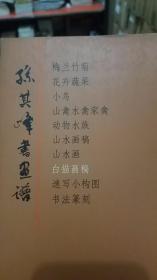 孫其峰書畫譜
梅兰竹菊
花卉蔬果
小鸟
山禽水禽家禽
动物水族
山水画稿
山水画
白描画稿
速写小构图
书法篆刻